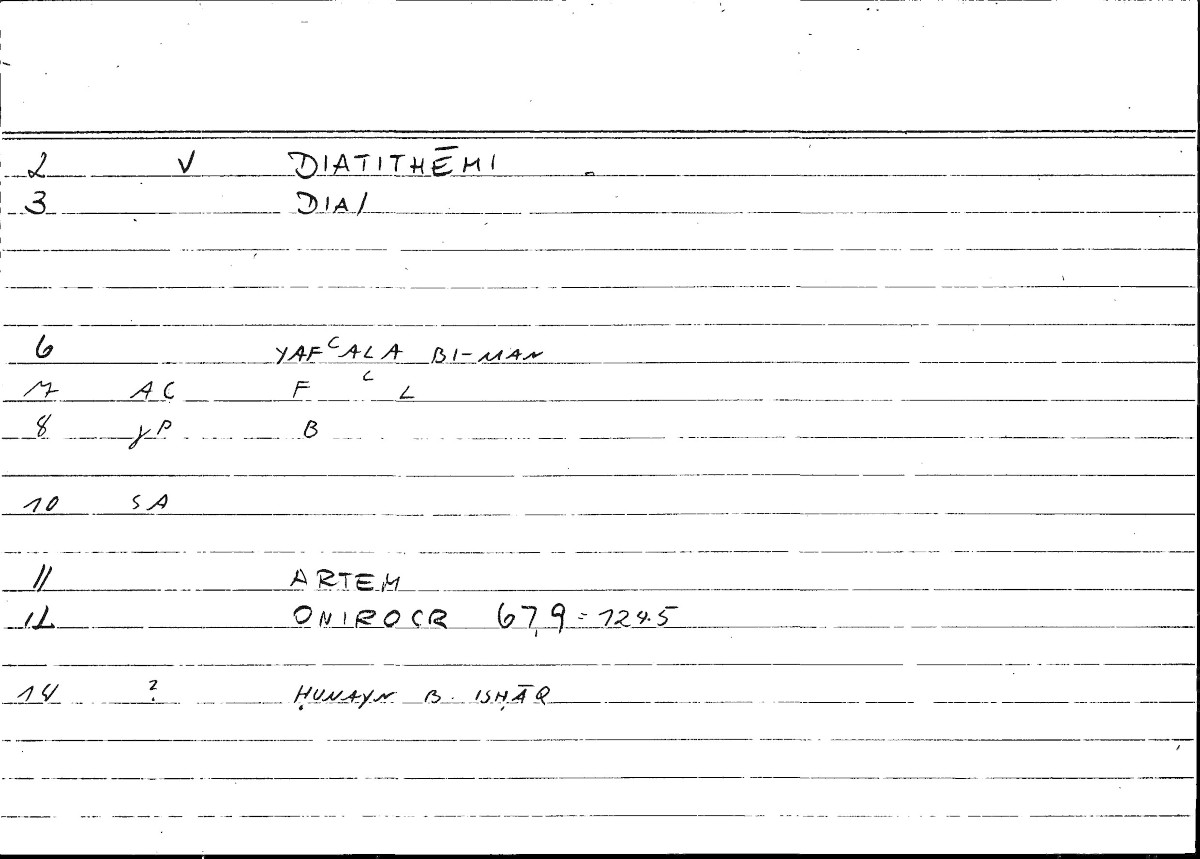 2 V DIATITHĒMI
3 DIA/
6 YAFᶜALA BI-MAN
7 AC F ᶜ L
8 γP B
10 SA
11 ARTEM
12 ONIROCR 67,9 = 124.5
14 ? ḤUNAYN B. ISḤĀQ